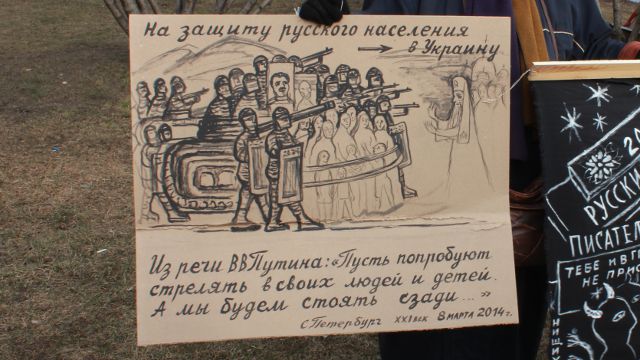 На защиту русского населения
→ в Украину
Из речи ВВПутина: «Пусть попробуют
стрелять в своих людей и детей.
А мы будем стоять сзади...»
С Петербург XXI век 8 марта 2014 г.
РУССКИ
ПИСАТЕЛ
ТЕБЕ И В Г
НЕ ПРИС